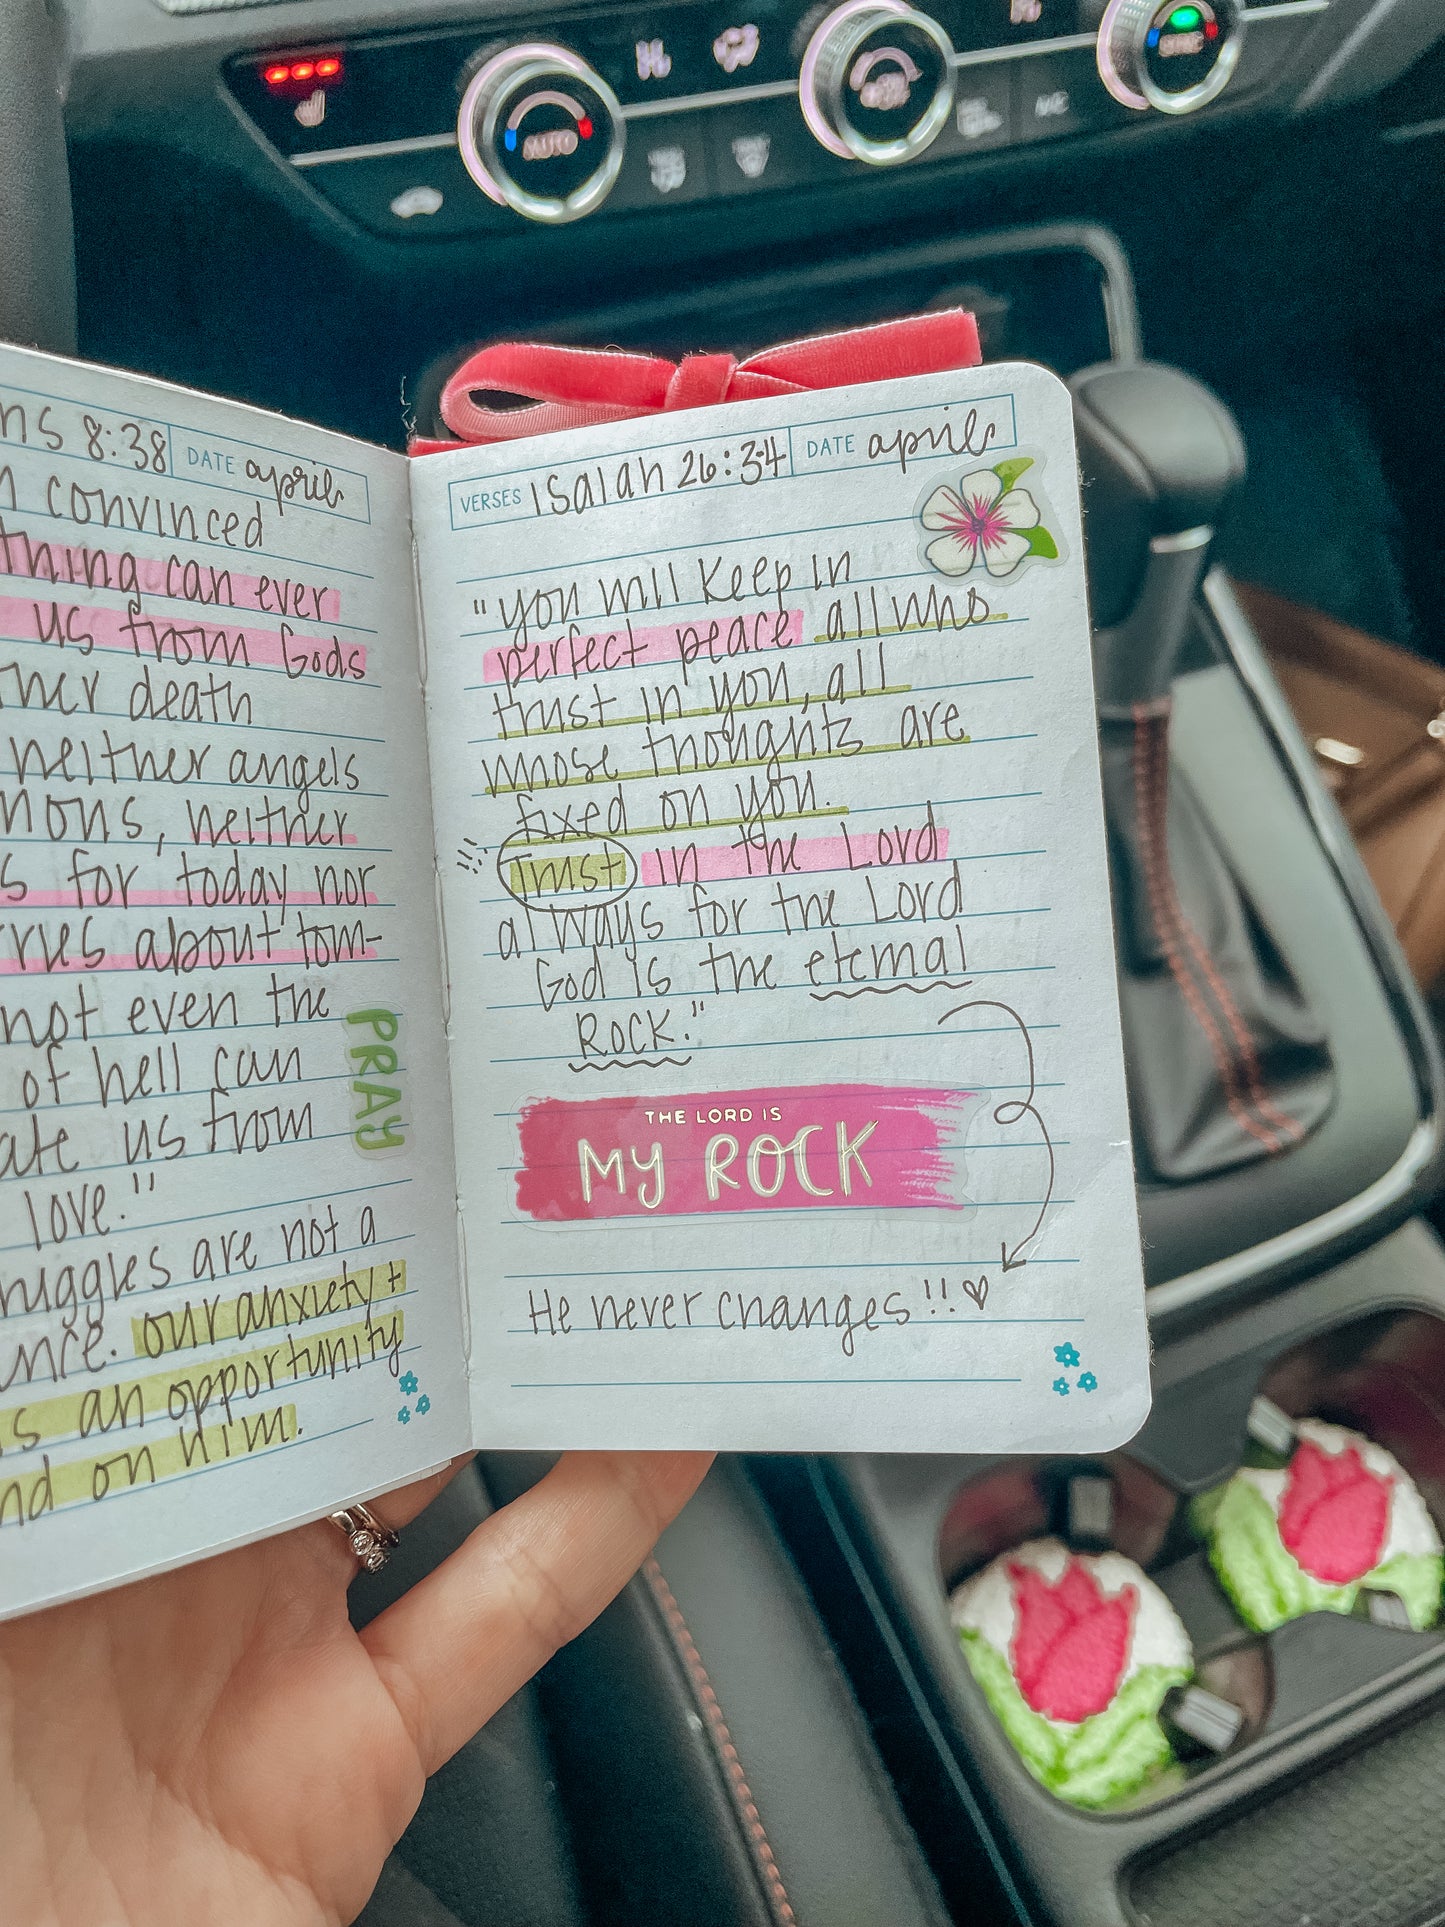 AUTO
SYNC
A/C
ns 8:38 DATE april
n convinced
thing can ever
us from Gods
ther death
neither angels
mons, neither
s for today nor
rries about tom-
not even the
of hell can
ate us from
love."
PRAY
ruggles are not a
ance. our anxiety +
is an opportunity
nd on him.
VERSES Isaiah 26:3-4 DATE april
"you will keep in
perfect peace all who
trust in you, all
whose thoughts are
fixed on you.
Trust in the Lord
always for the Lord
God is the eternal
Rock."
THE LORD IS
MY ROCK
He never changes!!♡